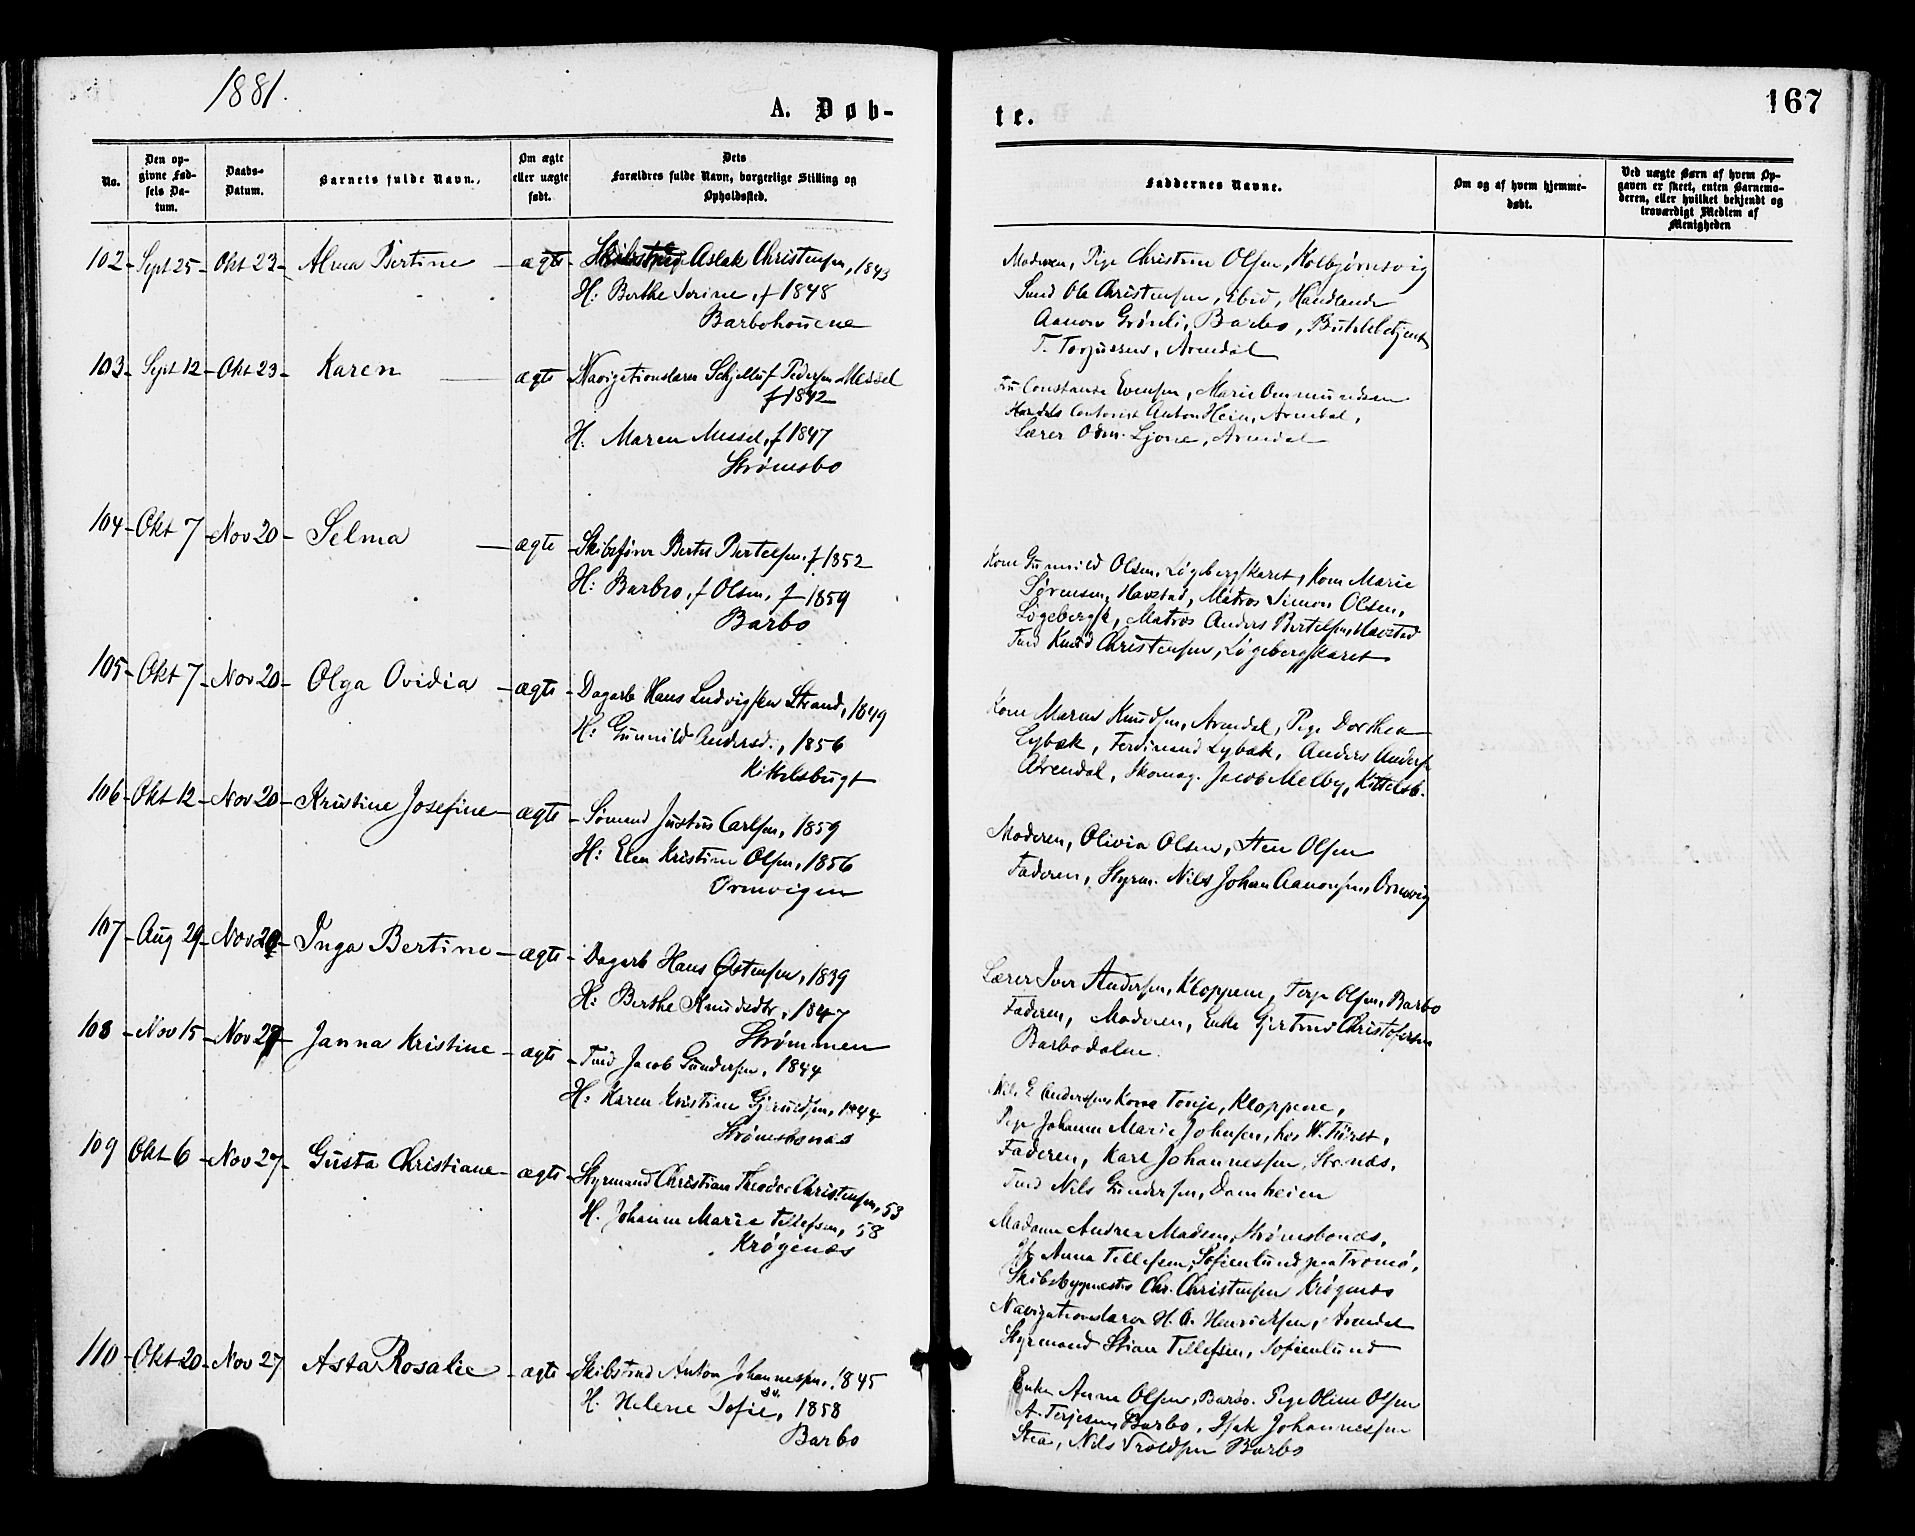 1881.
A. Døb-
No.
Den op-
givne Fød-
sels Da-
tum.
Daabs-
Datum.
Barnets fulde Navn.
Om ægte
eller uægte
født.
Dets
Forældres fulde Navn, borgerlige Stilling og
Opholdssted.
102 - Sept 25 - Okt 23 - Alma Bertine - ægte - Aslak Christensen, 1843
H: Berthe Serine, f 1848
Barbohouene
103 - Sept 12 - Okt 23 - Karen - ægte - Navigationslærer Pedersen Messel
f 1842
H. Maren Messel, f 1847
Strømsbo
104 - Okt 7 - Nov 20 - Selma - ægte - Skibsfører Bertel Bertelsen, f 1852
H: Barbro, f Olsen, f 1859
Barbo
105 - Okt 7 - Nov 20 - Olga Ovidia - ægte - Dagarb Hans Ludvigsen Strand, 1849
H: Gunnild Andersd., 1856
Kitelsbugt
106 - Okt 12 - Nov 20 - Kristine Josefine - ægte - Sømand Justus Carlsen, 1859
H: Elen Kristine Olsen, 1856
Ormvigen
107 - Aug 29 - Nov - Inga Bertine - ægte - Dagarb Hans Østensen, 1839
H: Berthe Knudsdtr, 1847
Strømmen
108 - Nov 15 - Nov 27 - Janna Kristine - ægte - Tmd Jacob Gundersen, 1844
H: Karen Kristine 1844
Strømsbonæs
109 Okt 6 - Nov 27 - Gusta Christiane - ægte - Styrmand Christian Theodor Christensen, 53
H. Johanne Marie Tellefsen, 58
Krøgenæs
110 - Okt 20 - Nov 27 Asta Rosalie - ægte - Skibstmd Anton Johannesen, 1845
H. Helene Sofie, 1858
Barbo
te.
167
Faddernes Navne.
Om og af hvem hjemme-
døbt.
Ved uægte Børn af hvem Op-
gaven er skeet, enten Barnemo-
deren, eller hvilket bekjendt og
troværdigt Medlem af
Menigheden
Moderen, Pige Christine Olsen, Kolbjørnsvig
Ole Christensen, ibid, Handlende
Aanon Barbo,
T. Torjussen, Arendal
Constance Evensen, Marie Ommundsen
Handels Contorist Anton Hein, Arendal,
Lærer Ljone, Arendal
Kone Gunnild Olsen, Løgebergskaret, Kone Marie
Sørensen, Havstad, Matros Simon Olsen,
Løgebergsk, Matros Anders Bertelsen, Havstad
Tmd Knud Christensen, Løgebergskaret
Kone Maren Knudsen, Arendal, Pige Dorthea
Lybæk, Ferdinand Lybæk, Anders Anders
Arendal, Skomag. Jacob Melby, Kittelsb.
Moderen, Olivia Olsen, Sten Olsen
Faderen, Styrm. Nils Johan Aanonsen, Ormvig
Lærer Iver Andersen, Kloppene, Terje Olsen, Barbo
Faderen, Moderen, Enke Gjertrud Christofersen
Barbodalen.
Nils E Andersens Kone Tonje, Kloppene,
Pige Johanne Marie Johnsen, hos W. Fürst,
Faderen, Karl Johannessen, Str.næs,
Tmd Nils Gundersen, Damheien
Madame Andrea Madsen, Strømsbonæs,
Anna Tellefsen, Sofienlund paa Tromø,
Skibsbygmester Chr. Christensen Krøgenæs
Navigationslærer H. A. Henriksen, Arendal
Styrmand Stian Tellefsen, Sofienlund
Enke Anne Olsen, Barbo. Pige Oline Olsen
A. Terjesen, Barbo, Isak Johannessen
Stea, Nils Troldsen Barbo